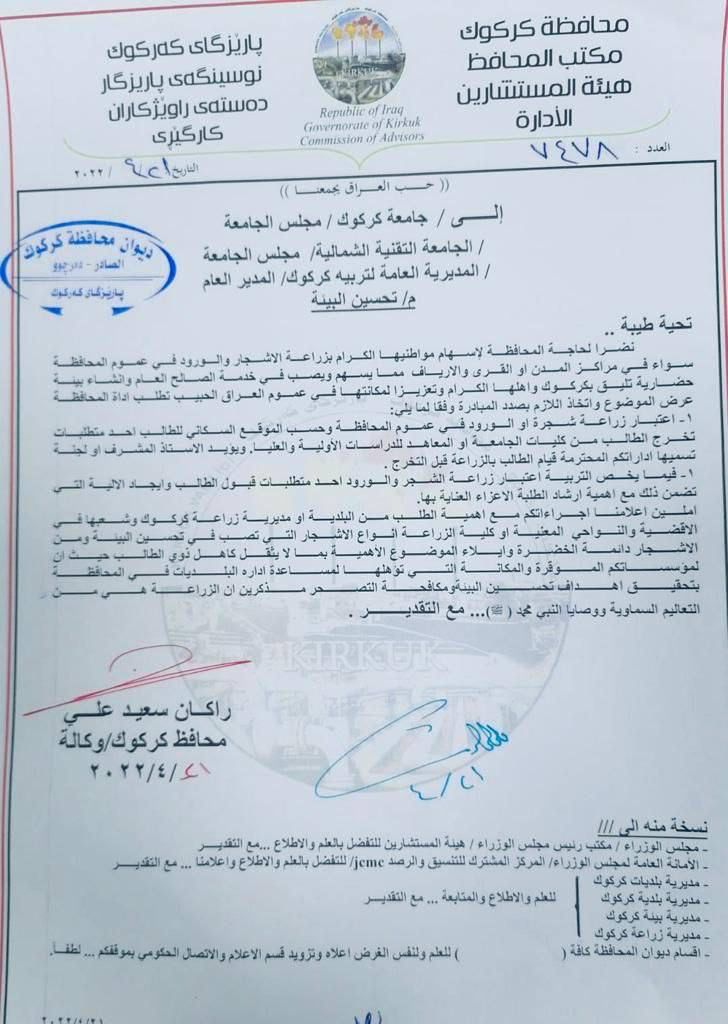 محافظة كركوك
مكتب المحافظ
هيئة المستشارين
الأدارة
پارێزگای کەرکوک
نوسینگەی پاریزگار
دەستەی راوێژکاران
کارگێڕی
KIRKUK
Republic of Iraq
Governorate of Kirkuk
Commission of Advisors
العدد : ٧٤٧٨
التاريخ ٤/٢١ / ٢٠٢٢
(( حب العراق يجمعنا ))
ديوان محافظة كركوك
الصادر -
پارێزگای کەرکوک
إلـــى / جامعة كركوك / مجلس الجامعة
/ الجامعة التقنية الشمالية/ مجلس الجامعة
/ المديرية العامة لتربيه كركوك/ المدير العام
م/ تحسين البيئة
تحية طيبة ..
نضرا لحاجة المحافظة لإسهام مواطنيها الكرام بزراعة الاشجار والورود في عموم المحافظة
سواء في مراكز المدن او القرى والارياف مما يسهم ويصب في خدمة الصالح العام وانشاء بيئة
حضارية تليق بكركوك واهلها الكرام وتعزيزا لمكانتها في عموم العراق الحبيب تطلب اداة المحافظة
عرض الموضوع واتخاذ اللازم بصدد المبادرة وفقا لما يلي:
١- اعتبار زراعة شجرة او الورود في عموم المحافظة وحسب الموقع السكاني للطالب احد متطلبات
تخرج الطالب من كليات الجامعة او المعاهد للدراسات الأولية والعليا, ويؤيد الاستاذ المشرف او لجنة
تسميها اداراتكم المحترمة قيام الطالب بالزراعة قبل التخرج .
١- فيما يخص التربية اعتبار زراعة الشجر والورود احد متطلبات قبول الطالب وايجاد الالية التي
تضمن ذلك مع اهمية ارشاد الطلبة الاعزاء العناية بها.
املين اعلامنا اجراءاتكم مع اهمية الطلب من البلدية او مديرية زراعة كركوك وشعبها في
الاقضية والنواحي المعنية او كلية الزراعة انواع الاشجار التي تصب في تحسين البيئة ومن
الاشجار دائمة الخضرة وايلاء الموضوع الأهمية بما لا يثقل كاهل ذوي الطالب حيث ان
لمؤسساتكم الموقرة والمكانة التي تؤهلها لمساعدة اداره البلديات في المحافظة
بتحقيق اهداف تحسين البيئةومكافحة التصحر مذكرين ان الزراعة هي من
التعاليم السماوية ووصايا النبي محمد (ﷺ)... مع التقديـــر .
KIRKUK
راكان سعيد علي
محافظ كركوك/وكالة
٢١/٤/٢٠٢٢
٤/٢١
نسخة منه الى ///
ـ مجلس الوزراء / مكتب رئيس مجلس الوزراء / هيئة المستشارين للتفضل بالعلم والاطلاع ...مع التقدير
ـ الأمانة العامة لمجلس الوزراء/ المركز المشترك للتنسيق والرصد jcmc/ للتفضل بالعلم والاطلاع واعلامنا ... مع التقدير
ـ مديرية بلديات كركوك
ـ مديرية بلدية كركوك
للعلم والاطلاع والمتابعة ... مع التقدير
ـ مديرية بيئة كركوك
ـ مديرية زراعة كركوك
ـ اقسام ديوان المحافظة كافة ( ) للعلم ولنفس الغرض اعلاه وتزويد قسم الاعلام والاتصال الحكومي بموقفكم ... لطفاً.
٢٠٢٢/٤/٢١